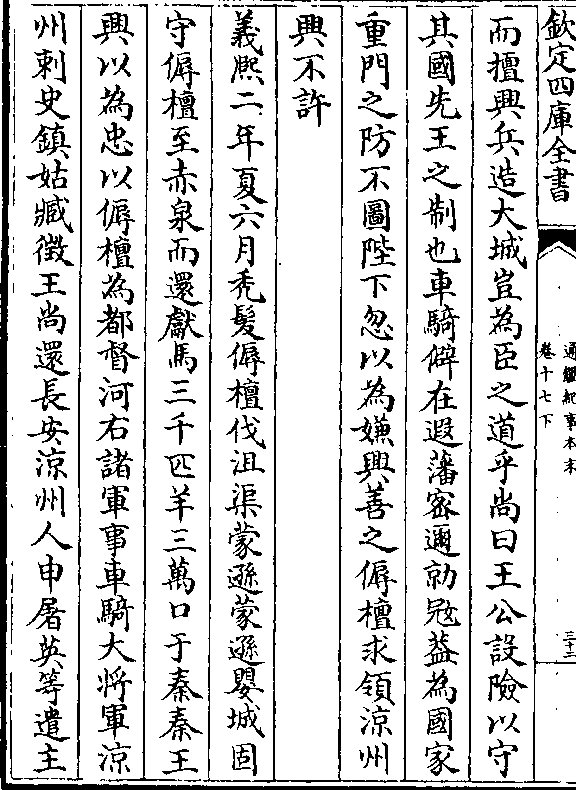 欽定四庫全書
通鑑紀事本末
卷十七下
三十二
而擅興兵造大城豈為臣之道乎尚曰王公設險以守
其國先王之制也車騎僻在遐藩密邇勍寇蓋為國家
重門之防不圖陛下忽以為嫌興善之傉檀求領涼州
興不許
義熙二年夏六月禿髮傉檀伐沮渠蒙遜蒙遜嬰城固
守傉檀至赤泉而還獻馬三千匹羊三萬口于秦秦王
興以為忠以傉檀為都督河右諸軍事車騎大將軍涼
州刺史鎮姑臧徵王尚還長安涼州人申屠英等遣主